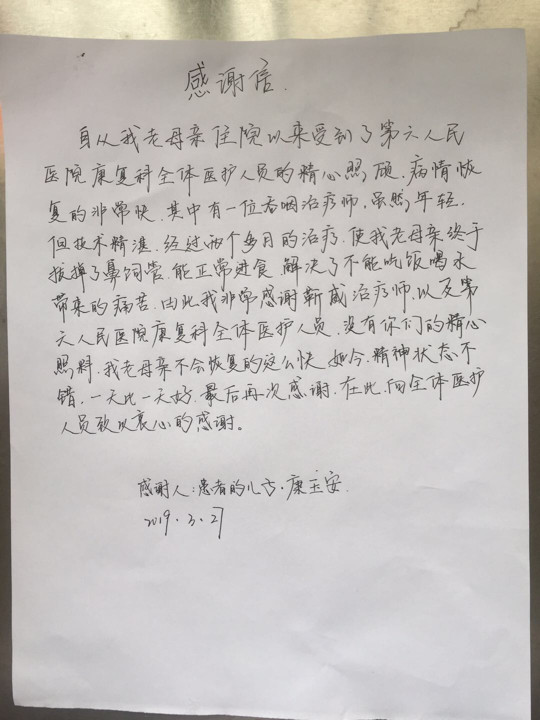 感谢信.
自从我老母亲住院以来受到了第六人民
医院康复科全体医护人员的精心照顾.病情恢
复的非常快.其中有一位吞咽治疗师.虽然年轻.
但技术精湛.经过两个多月的治疗.使我老母亲终于
拔掉了鼻饲管.能正常进食.解决了不能吃饭喝水
带来的病苦.由此我非常感谢靳威治疗师.以及第
六人民医院康复科全体医护人员.没有你们的精心
照料.我老母亲不会恢复的这么快.如今.精神状态不
错.一天比一天好.最后再次感谢.在此.向全体医护
人员致以衷心的感谢。
感谢人:患者的儿子.康玉安.
2019.3.27